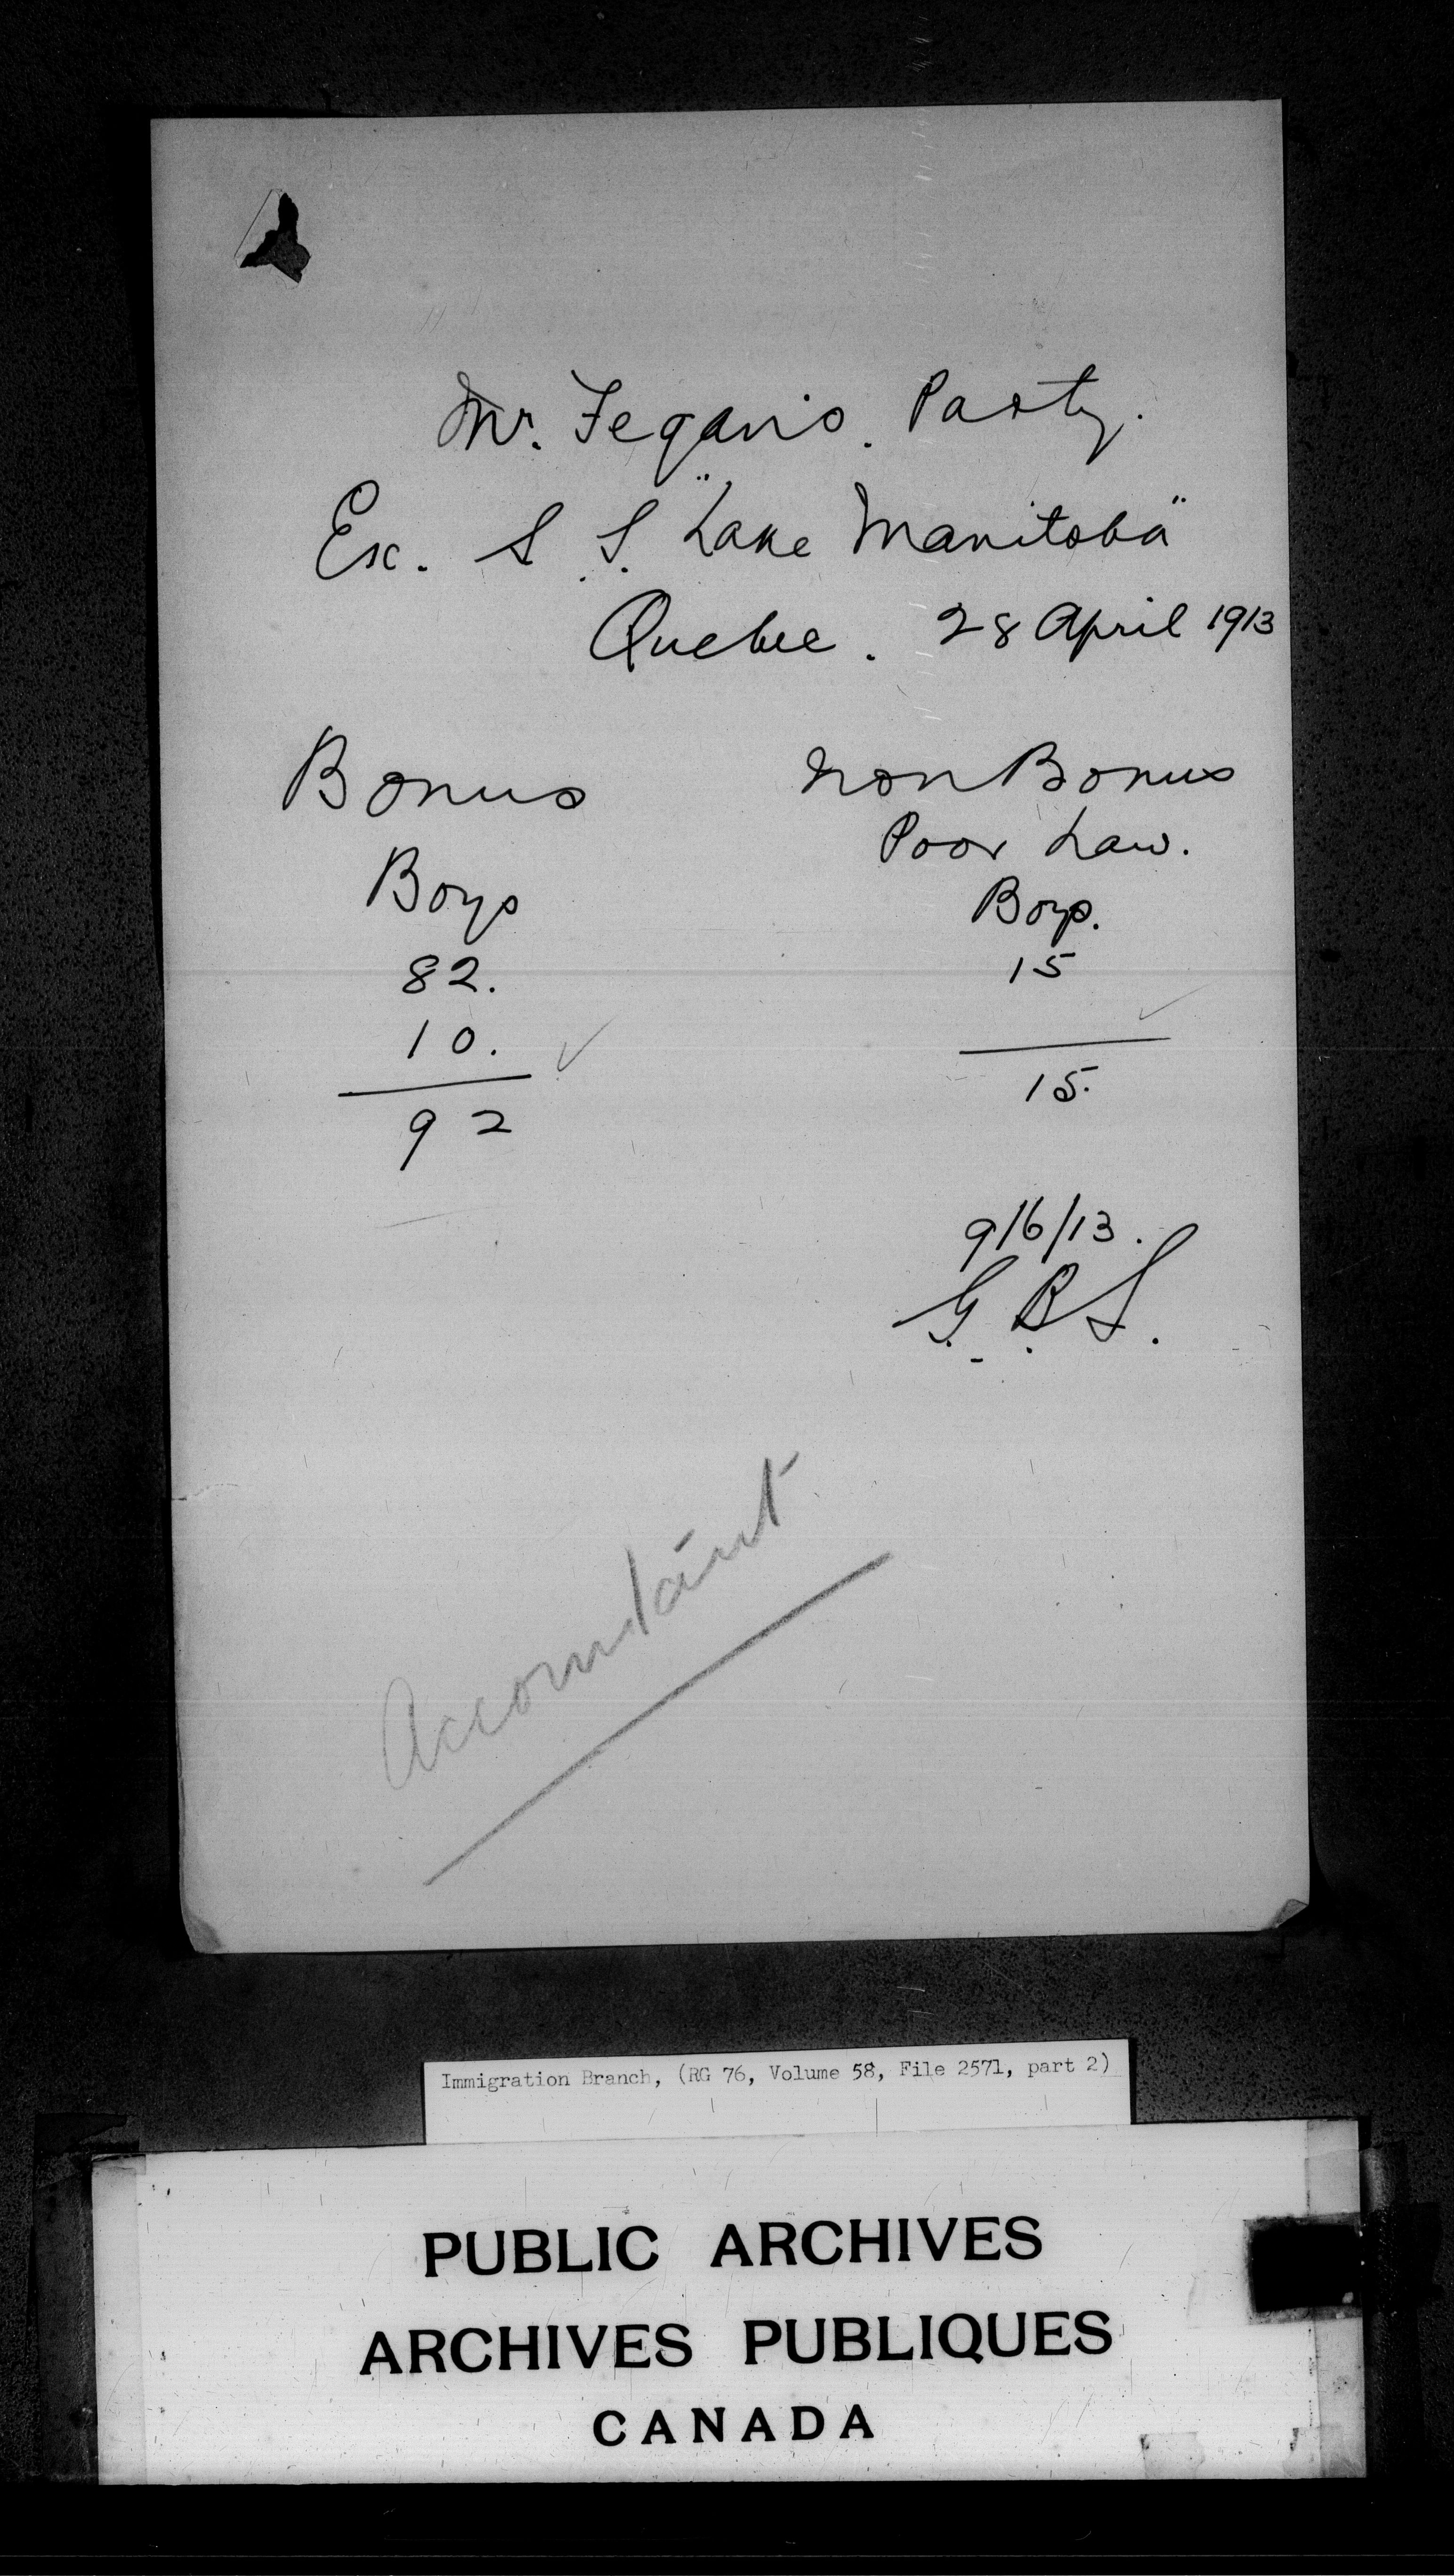 Mr. Fegan's. Party.
Ex. S.S. "Lake Manitoba"
Quebec. 28 April 1913
Bonus
Non Bonus
Poor Law.
Boys
Boys.
82.
15
10.
92
15.
9/6/13.
G.B.S.
Accountant
Immigration Branch, (RG 76, Volume 58, File 2571, part 2)
PUBLIC ARCHIVES
ARCHIVES PUBLIQUES
CANADA